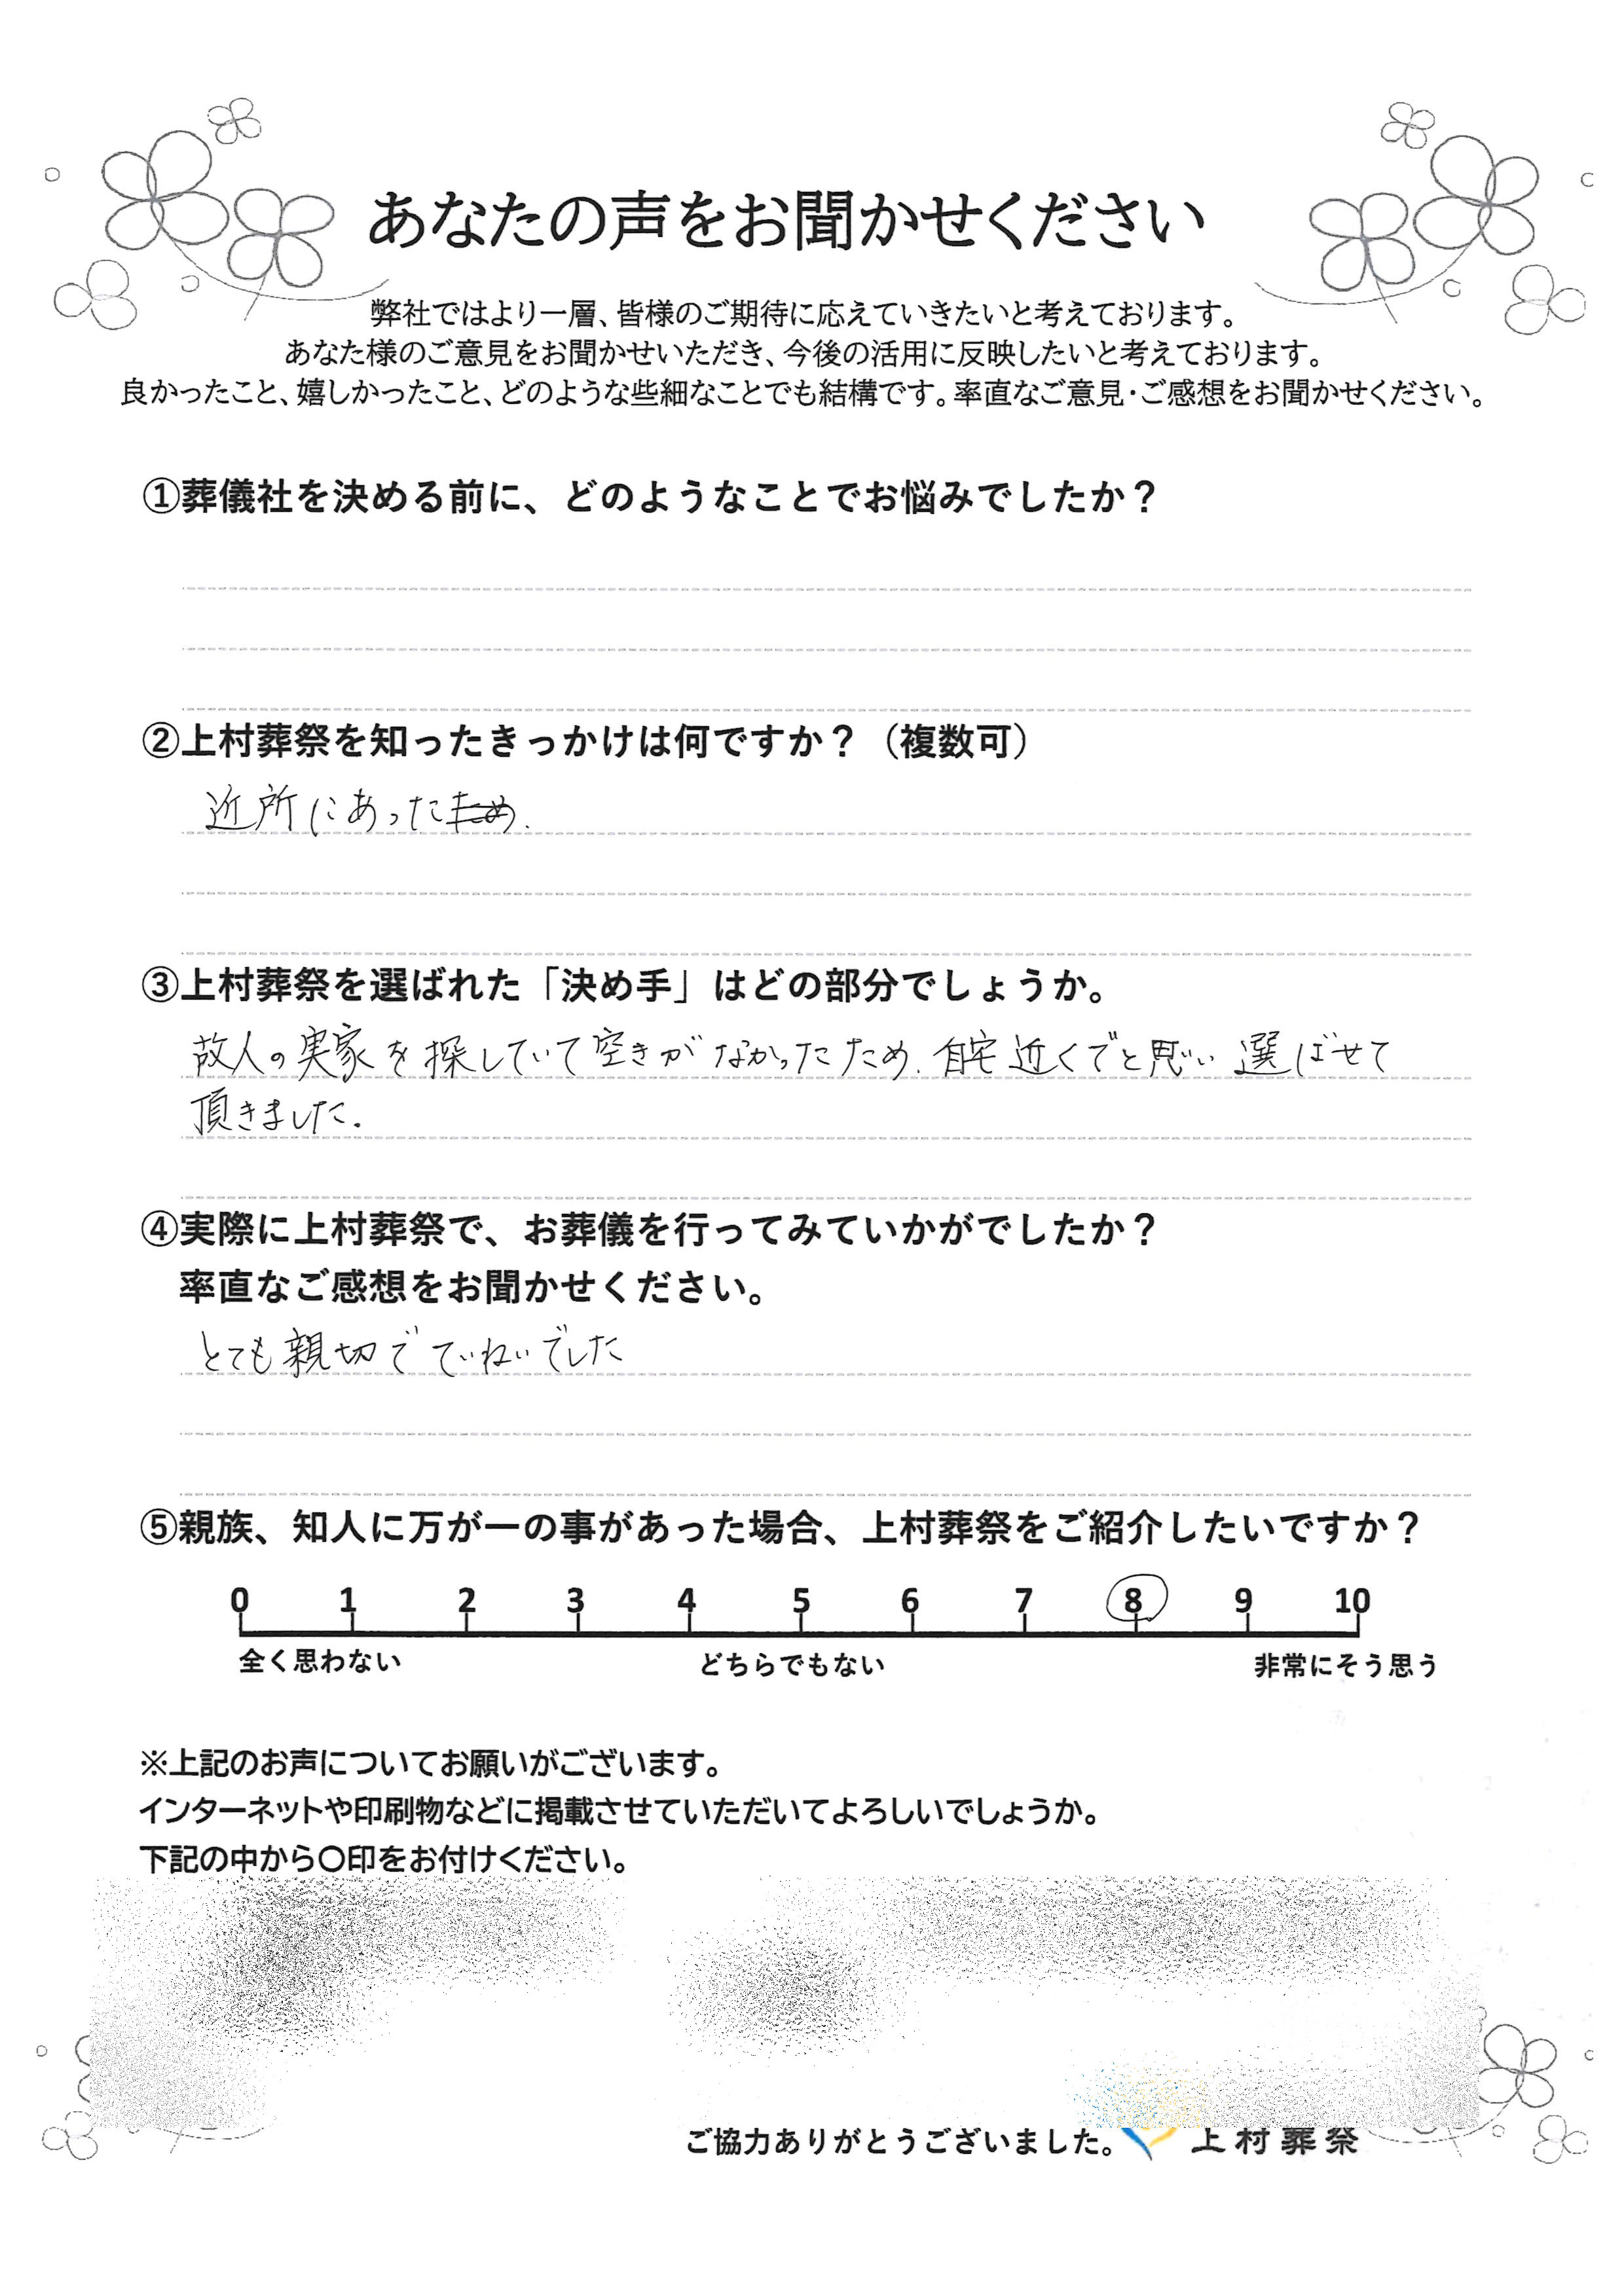 あなたの声をお聞かせください
弊社ではより一層、皆様のご期待に応えていきたいと考えております。
あなた様のご意見をお聞かせいただき、今後の活用に反映したいと考えております。
良かったこと、嬉しかったこと、どのような些細なことでも結構です。率直なご意見・ご感想をお聞かせください。
①葬儀社を決める前に、どのようなことでお悩みでしたか？
②上村葬祭を知ったきっかけは何ですか？（複数可）
近所にあったため.
③上村葬祭を選ばれた「決め手」はどの部分でしょうか。
故人の実家を探していて空きがなかったため.自宅近くでと思い選ばせて
頂きました.
④実際に上村葬祭で、お葬儀を行ってみていかがでしたか？
率直なご感想をお聞かせください。
とても親切でていねいでした
⑤親族、知人に万が一の事があった場合、上村葬祭をご紹介したいですか？
0 1 2 3 4 5 6 7 8 9 10
全く思わない どちらでもない 非常にそう思う
※上記のお声についてお願いがございます。
インターネットや印刷物などに掲載させていただいてよろしいでしょうか。
下記の中から〇印をお付けください。
ご協力ありがとうございました。 上村葬祭